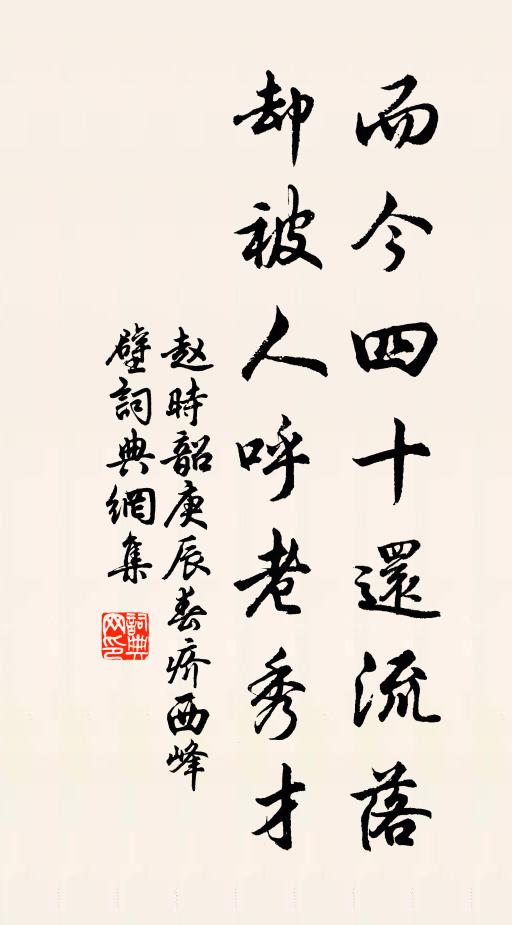 而今四十還流落
却被人呼老秀才
赵時韶庚辰春疥西峰
壁詞典網集
詞典
网印